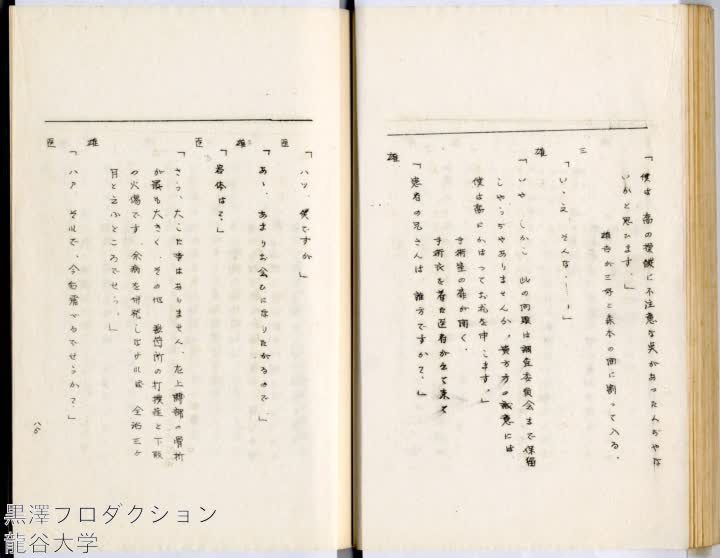 「僕は 高の操縦に不注意な点があったんぢやな
いかと思ひます。」
雄吉が三好と森本の間に割って入る。
三
「いゝえ そんな……」
雄
「いや しかし 此の問題は調査委員会まで保留
しやうぢやありませんか。貴方方の誠意には
僕は高にかはつてお礼を申します。」
手術室の扉が開く。
手術衣を着た医者が出て来て
「患者の兄さんは 誰方ですか？」
雄
「ハッ、僕ですが」
医
「あゝ、あまりお会ひになりたがるので」
雄
「容体は？」
医
「さう、大した事はありません。左上膊部の骨折
が最も大きく、その他 数箇所の打撲症と下肢
の火傷です。余病を併発しなければ 全治三ケ
月と云ふところでせう。」
雄
「ハア それで、今も会へるでせうか？」
医
黒澤プロダクション
龍谷大学